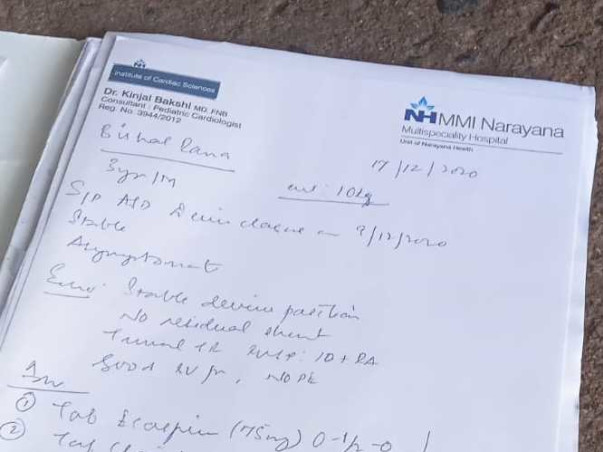 Institute of Cardiac Sciences
Dr. Kinjal Bakshi MD, FNB
Consultant : Pediatric Cardiologist
Reg. No. 3944/2012
NH MMI Narayana
Multispeciality Hospital
Unit of Narayana Health
17/12/2020
Bishal Rana
3yr/M
wt: 10kg
S/P ASD Device closure on 9/12/2020
Stable
Asymptomat
Echo: Stable device position
No residual shunt
Trivial TR RVSP: 10 + RA
Good LV fn, NO PE
Adv
① Tab Ecospin (75mg) 0-1/2-0
② Tab